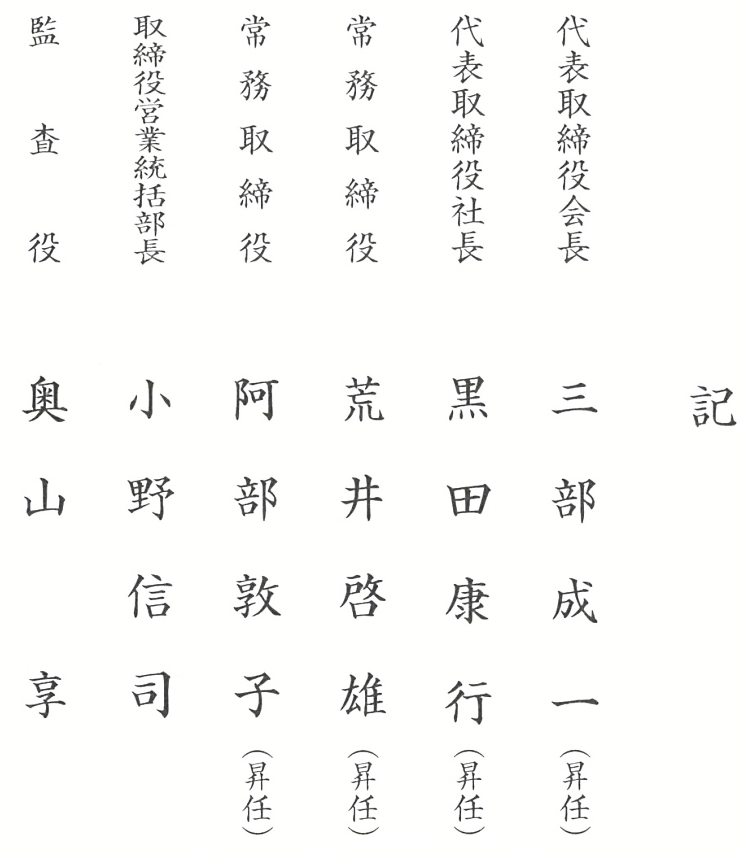 記
代表取締役会長 三部成一(昇任)
代表取締役社長 黒田康行(昇任)
常務取締役 荒井啓雄(昇任)
常務取締役 阿部敦子(昇任)
取締役営業統括部長 小野信司
監査役 奥山享